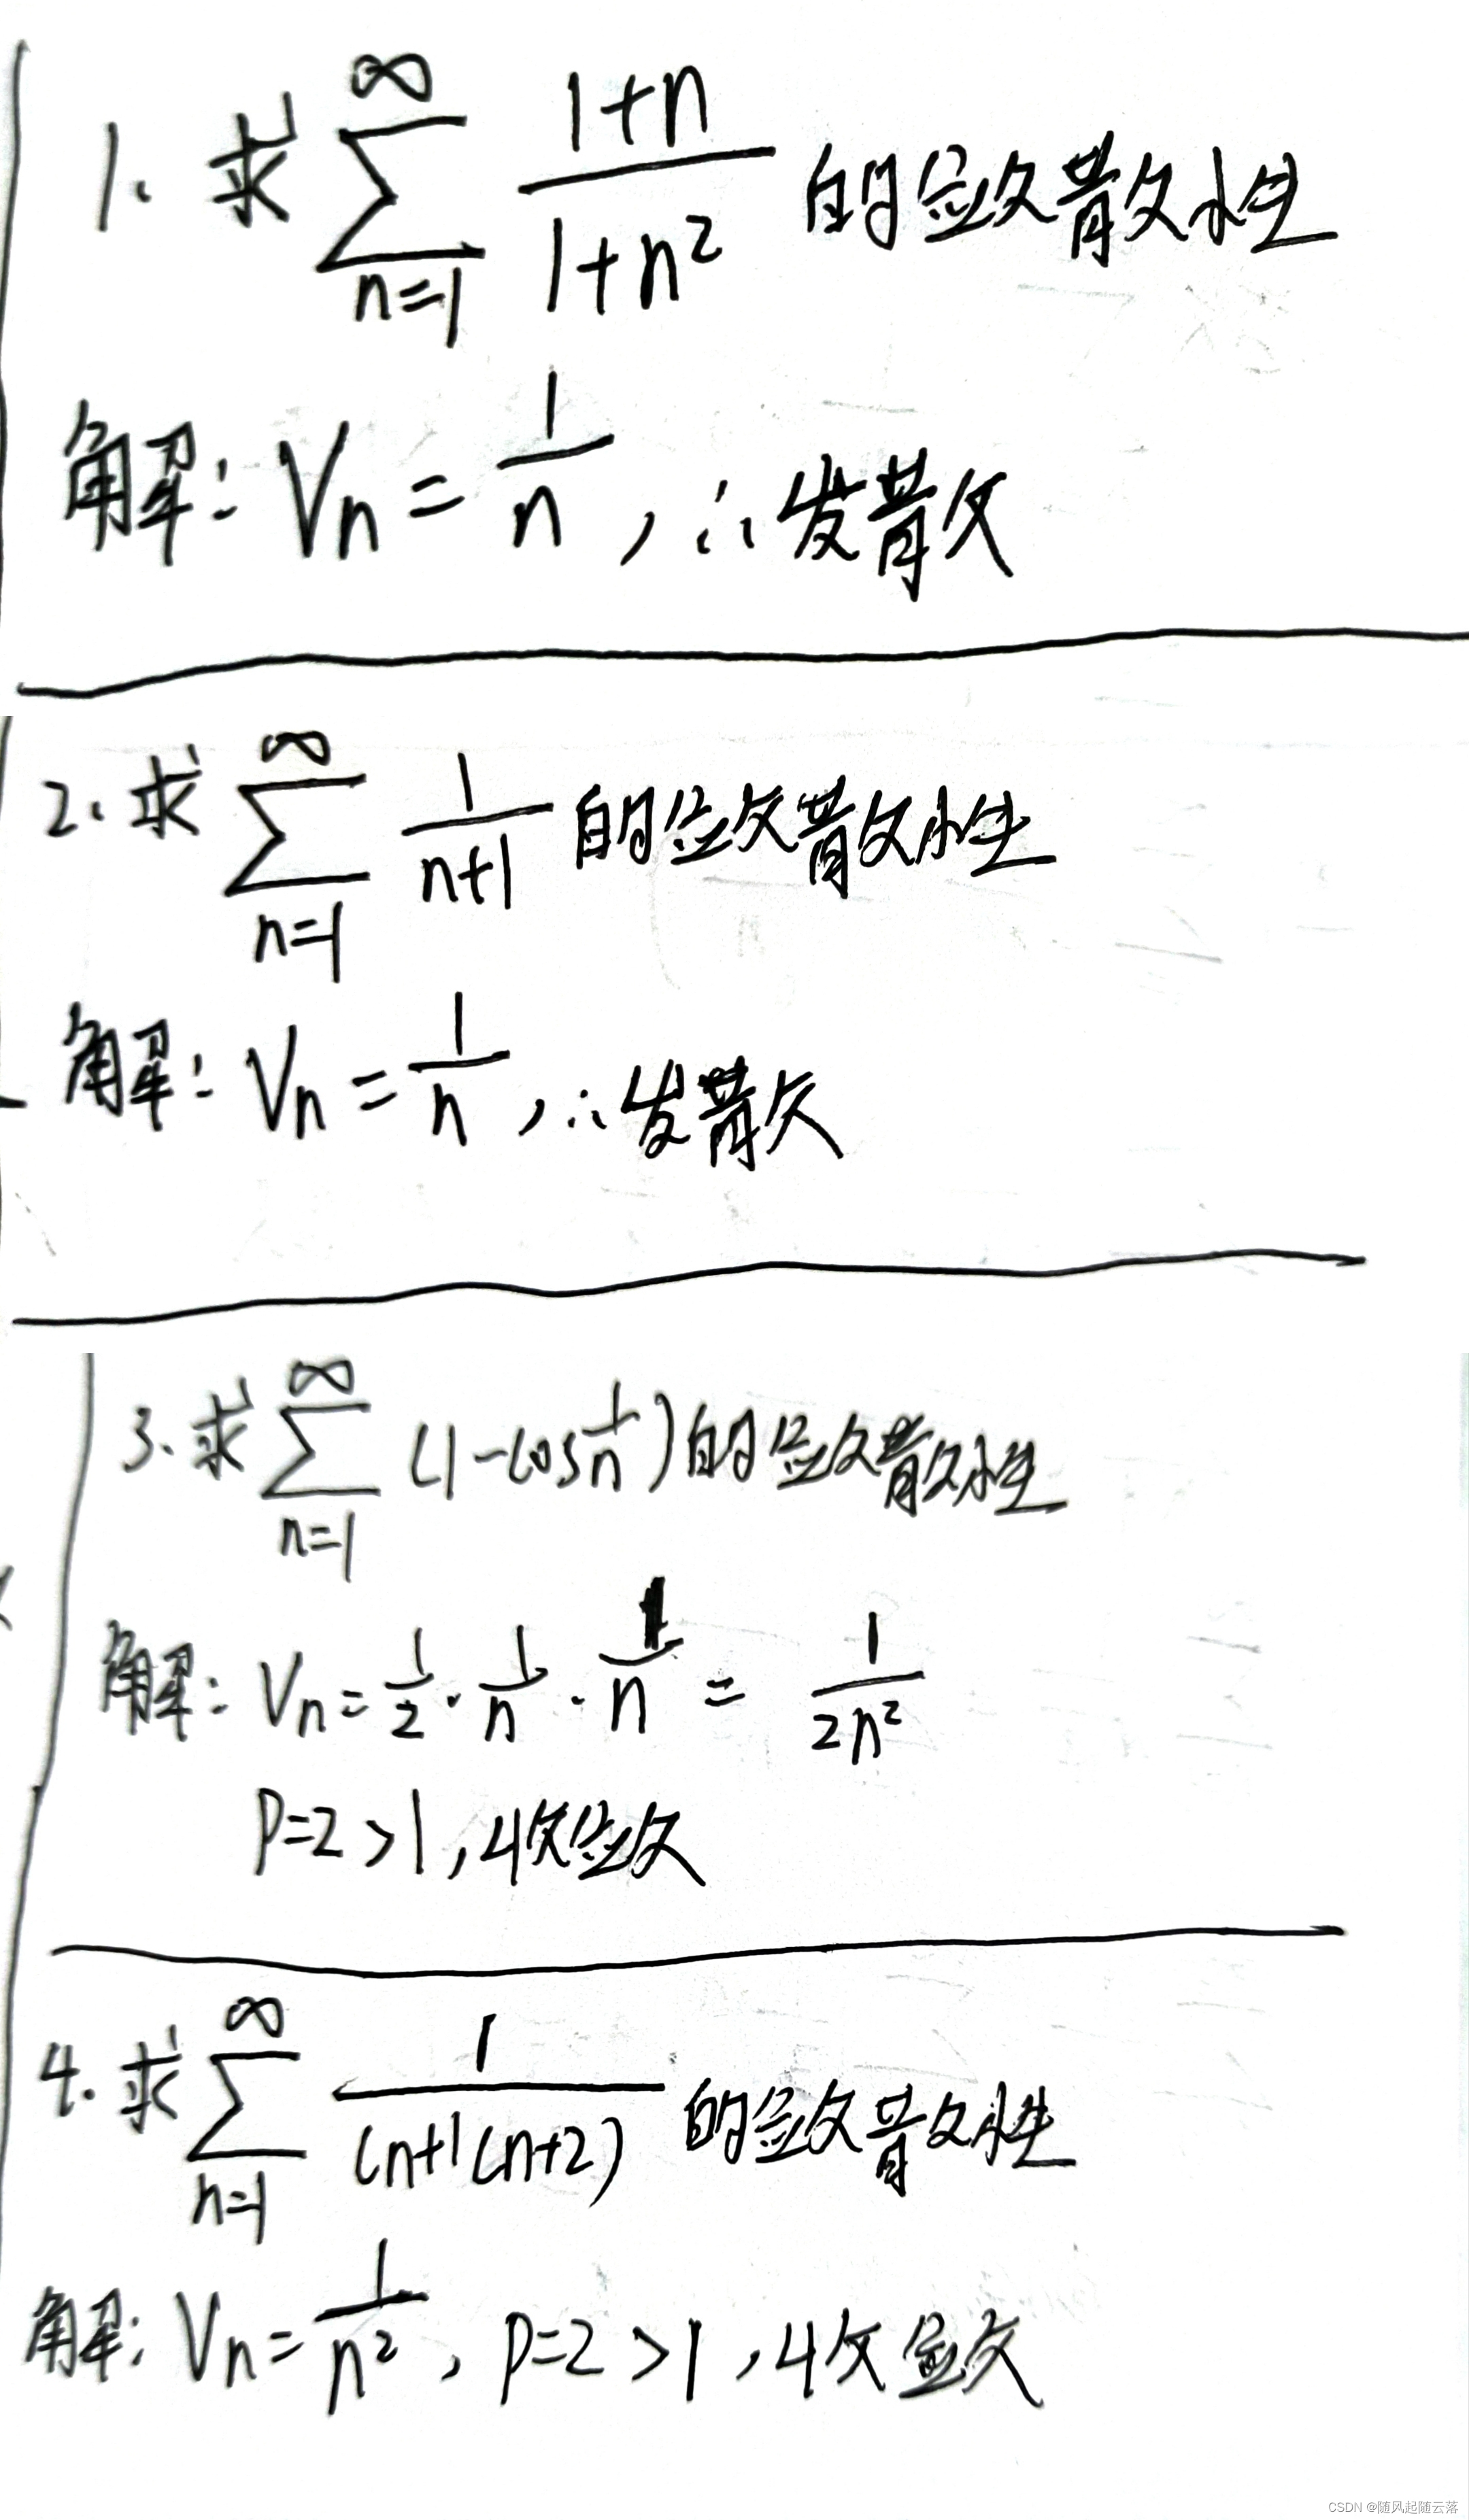 1. 求 ∞∑n=1 (1+n)/(1+n²) 的敛散性
解: Vn = 1/n , ∴发散
2. 求 ∞∑n=1 1/(n+1) 的敛散性
解: Vn = 1/n , ∴发散
3. 求 ∞∑n=1 (1-cos1/n) 的敛散性
解: Vn = 1/2 · 1/n · 1/n = 1/2n²
P=2>1, 收敛
4. 求 ∞∑n=1 1/(n+1(n+2) 的敛散性
解: Vn = 1/n² , P=2>1, 收敛
CSDN @随风起随云落